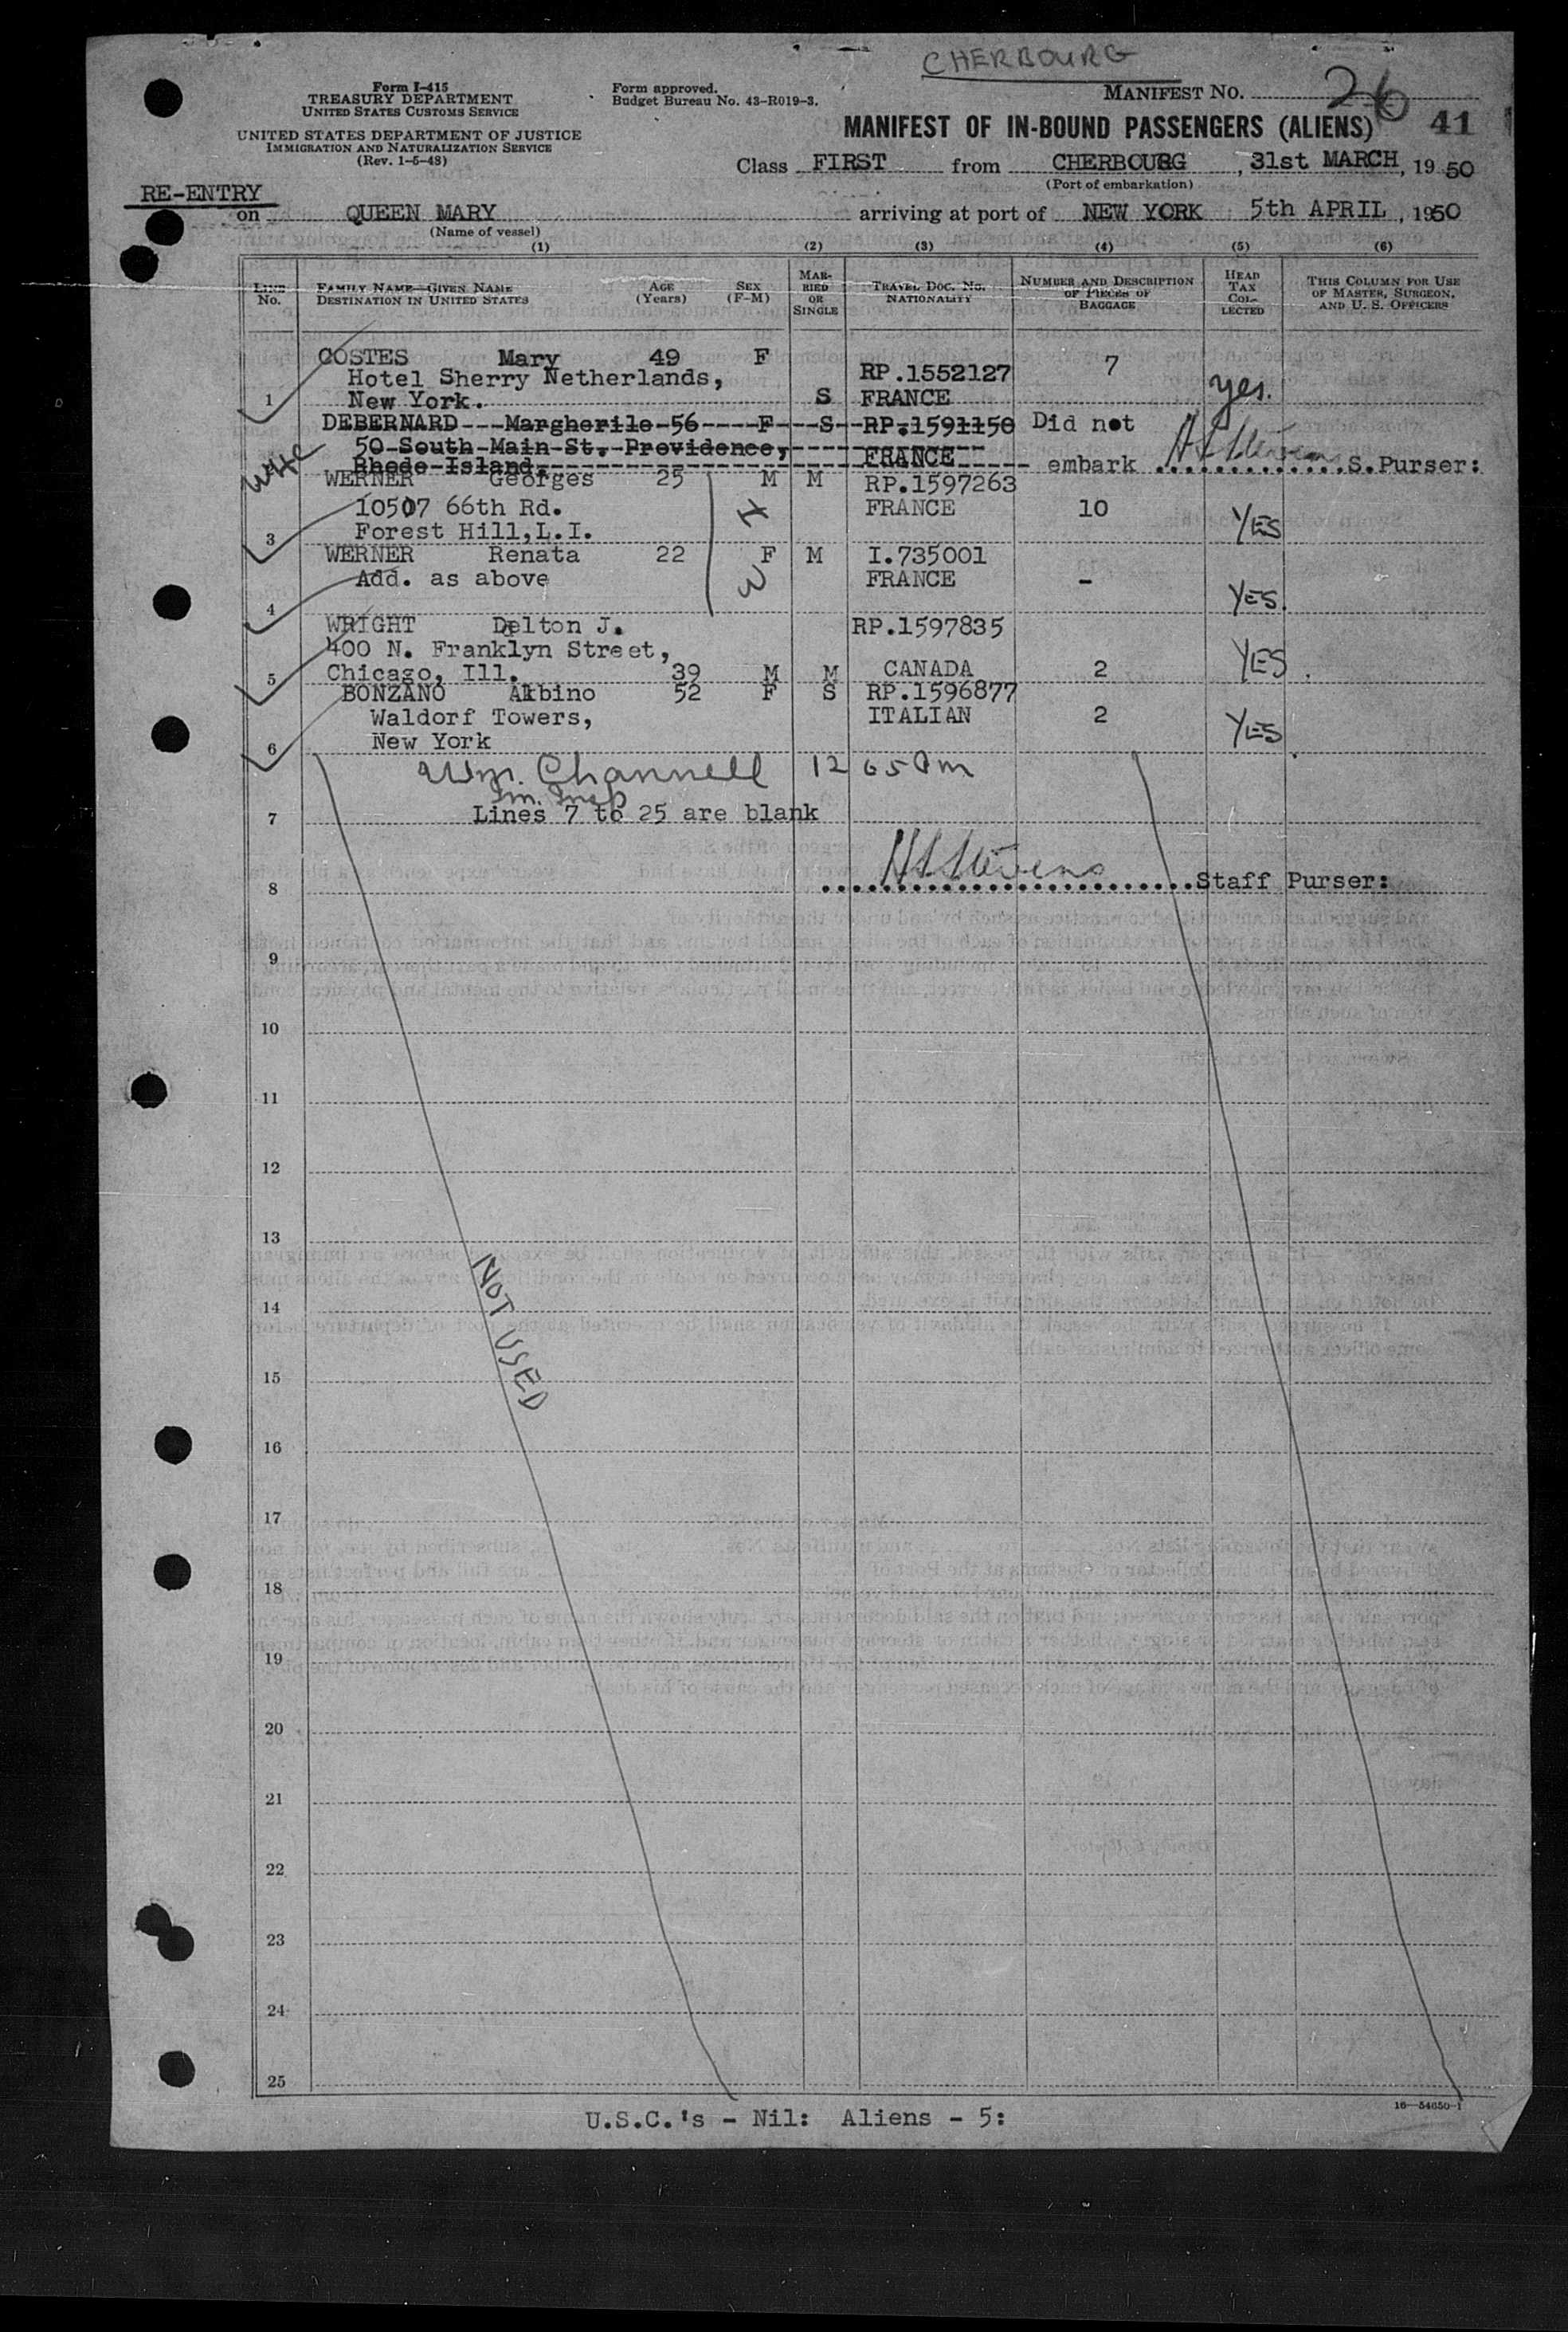 CHERBOURG
Form I-415
TREASURY DEPARTMENT
UNITED STATES CUSTOMS SERVICE
UNITED STATES DEPARTMENT OF JUSTICE
IMMIGRATION AND NATURALIZATION SERVICE
(Rev. 1-5-48)
Form approved.
Budget Bureau No. 43-R019-3.
MANIFEST NO. 26
MANIFEST OF IN-BOUND PASSENGERS (ALIENS) 41
Class FIRST from CHERBOURG, 31st MARCH, 1950
(Port of embarkation)
RE-ENTRY
on QUEEN MARY arriving at port of NEW YORK 5th APRIL, 1950
(Name of vessel)
(1) (2) (3) (4) (5) (6)
LINE No. FAMILY NAME—GIVEN NAME DESTINATION IN UNITED STATES AGE (Years) SEX (F-M) MARRIED OR SINGLE TRAVEL DOC. NO. NATIONALITY NUMBER AND DESCRIPTION OF PIECES OF BAGGAGE HEAD TAX COLLECTED THIS COLUMN FOR USE OF MASTER, SURGEON, AND U. S. OFFICERS
COSTES Mary 49 F 7
Hotel Sherry Netherlands, RP.1552127
1 New York. S FRANCE yes.
DEBERNARD---Margherile-56----F---S--RP.1591150 Did not
50-South-Main-St.-Providence,
Rhode-Island. FRANCE embark S.Purser:
WERNER Georges 25 M M RP.1597263
10507 66th Rd. FRANCE 10
3 Forest Hill,L.I. YES
WERNER Renata 22 F M I.735001
Add. as above FRANCE -
4 YES.
WRIGHT Delton J. RP.1597835
400 N. Franklyn Street, YES
5 Chicago, Ill. 39 M M CANADA 2
BONZANO Albino 52 F S RP.1596877
Waldorf Towers, ITALIAN 2 YES
6 New York
Wm. Channell
Im. Insp
7 Lines 7 to 25 are blank
8 H Stevens Staff Purser:
9
10
11
12
13
NOT USED
14
15
16
17
18
19
20
21
22
23
24
25
16—54650-1
U.S.C.'s - Nil: Aliens - 5: